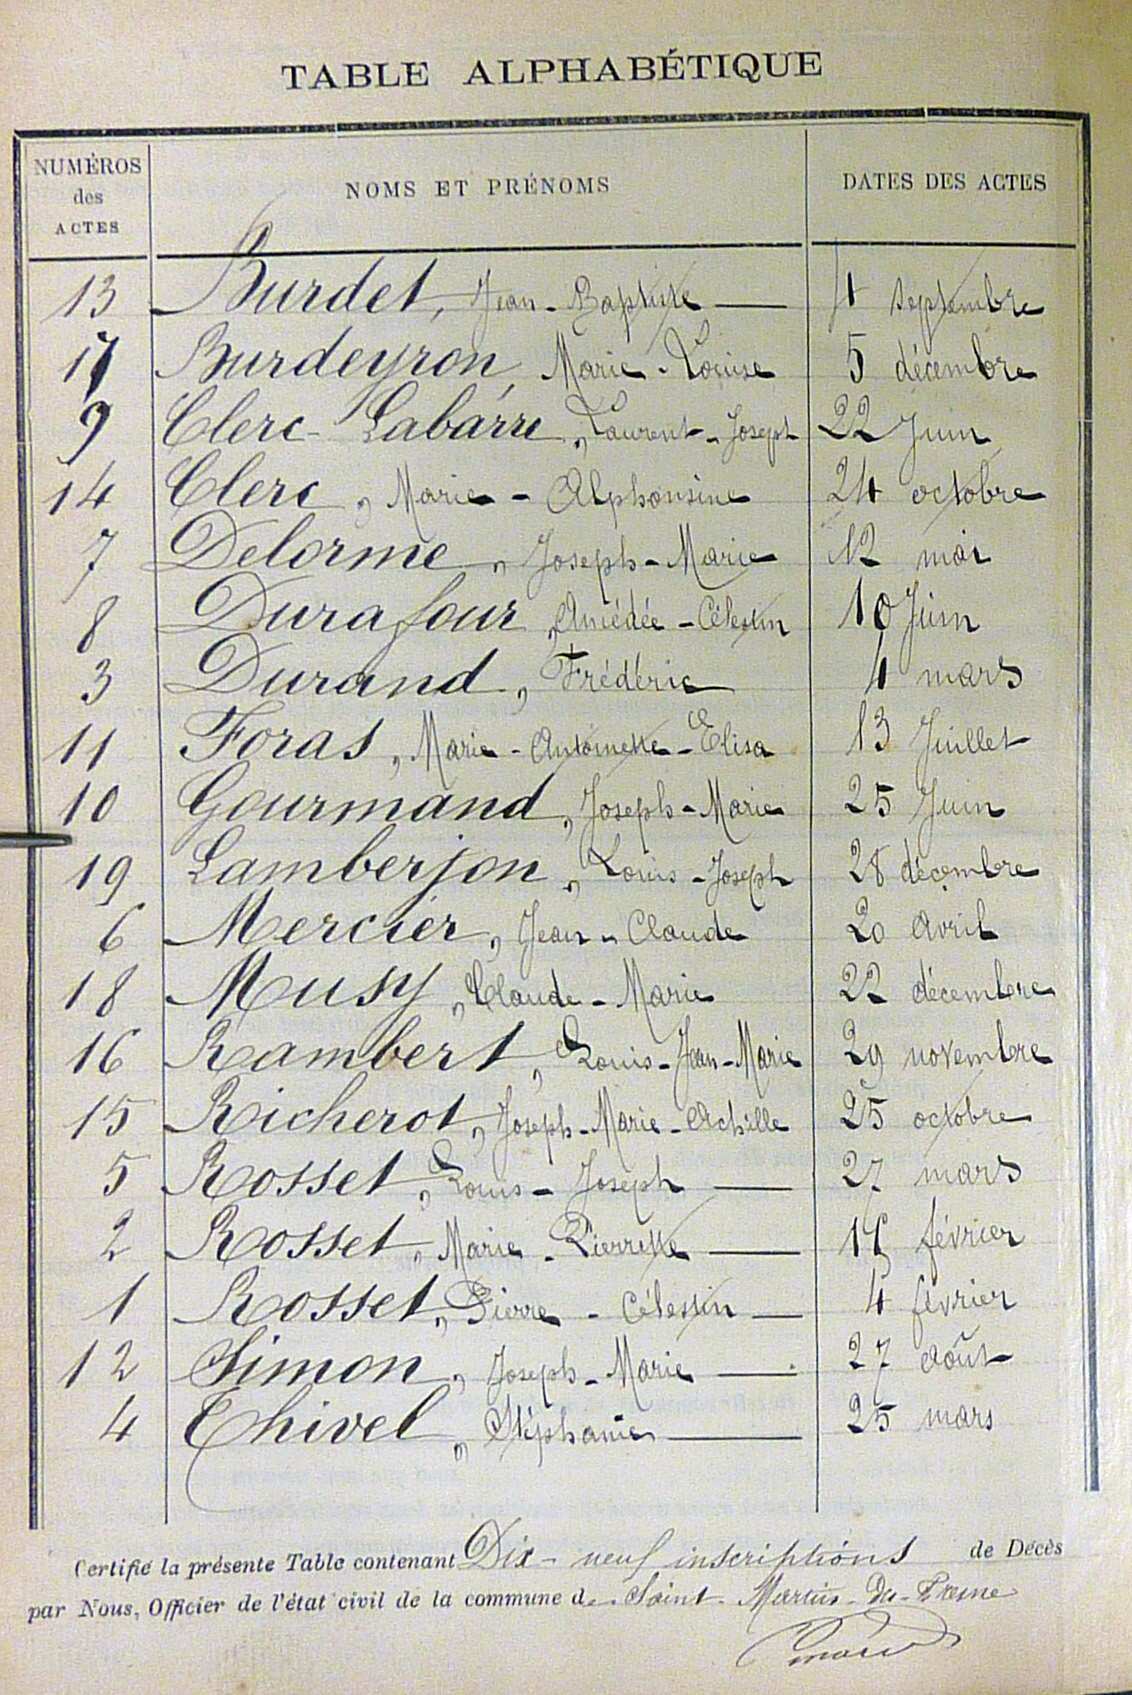 TABLE ALPHABÉTIQUE
NUMÉROS des ACTES NOMS ET PRÉNOMS DATES DES ACTES
13 Burdet, Jean-Baptiste — 4 septembre
17 Burdeyron, Marie-Louise 5 décembre
9 Clerc-Labarre, Laurent-Joseph 22 Juin
14 Clerc, Marie-Alphonsine 24 octobre
7 Delorme, Joseph-Marie 12 mai
8 Durafour, Amédée-Célestin 10 Juin
3 Durand, Frédéric 4 mars
11 Foras, Marie-Antoinette-Elisa 13 Juillet
10 Gourmand, Joseph-Marie 25 Juin
19 Lamberjon, Louis-Joseph 28 décembre
6 Mercier, Jean-Claude 20 avril
18 Musy, Claude-Marie 22 décembre
16 Rambert, Louis-Jean-Marie 29 novembre
15 Richerot, Joseph-Marie-Achille 25 octobre
5 Rosset, Louis-Joseph — 27 mars
2 Rosset, Marie-Pierrette — février
1 Rosset, Pierre-Célestin — 4 février
12 Simon, Joseph-Marie — 27 août
4 Thivel, Stéphanie — 25 mars
Certifié la présente Table contenant Dix-neuf inscriptions de Décès
par Nous, Officier de l'état civil de la commune de Saint-Martin-du-Fresne